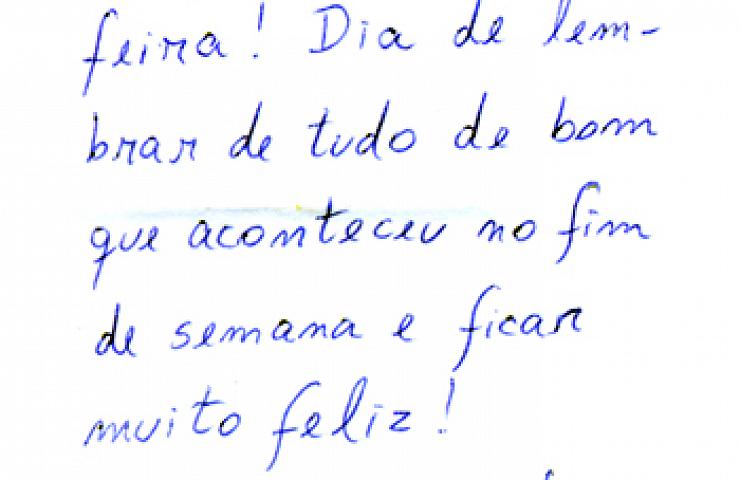 feira! Dia de lem-
brar de tudo de bom
que aconteceu no fim
de semana e ficar
muito feliz!